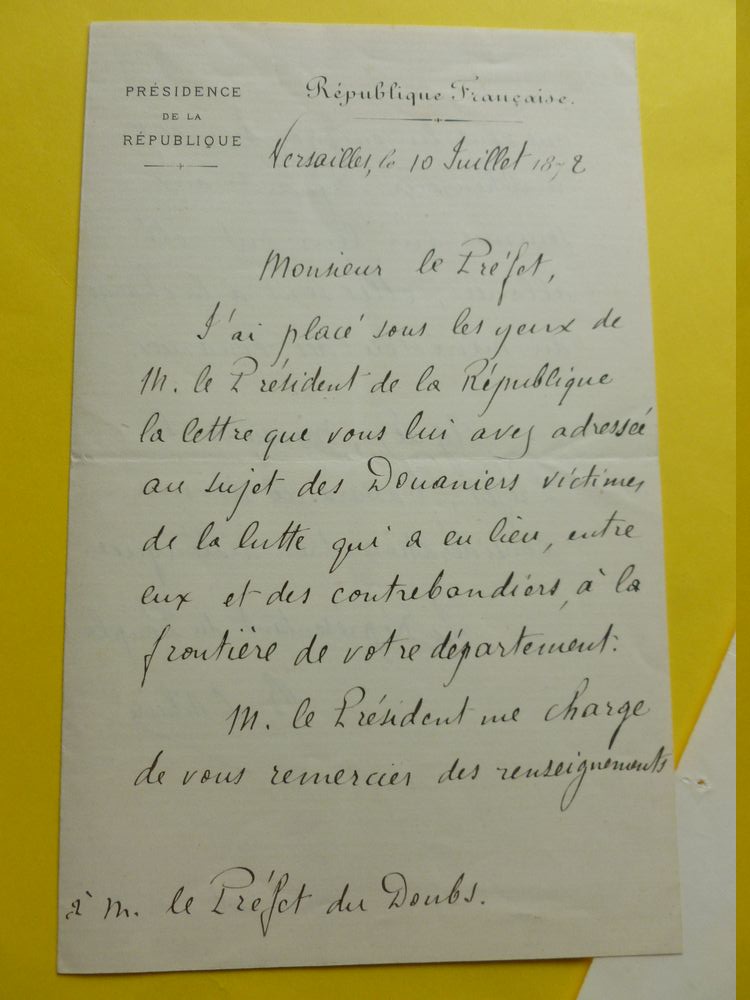 PRÉSIDENCE
DE LA
RÉPUBLIQUE
République Française.
Versailles, le 10 Juillet 1872
Monsieur le Préfet,
J'ai placé sous les yeux de
M. le Président de la République
la lettre que vous lui avez adressée
au sujet des Douaniers victimes
de la lutte qui a eu lieu, entre
eux et des contrebandiers, à la
frontière de votre département.
M. le Président me charge
de vous remercier des renseignements
à M. le Préfet du Doubs.